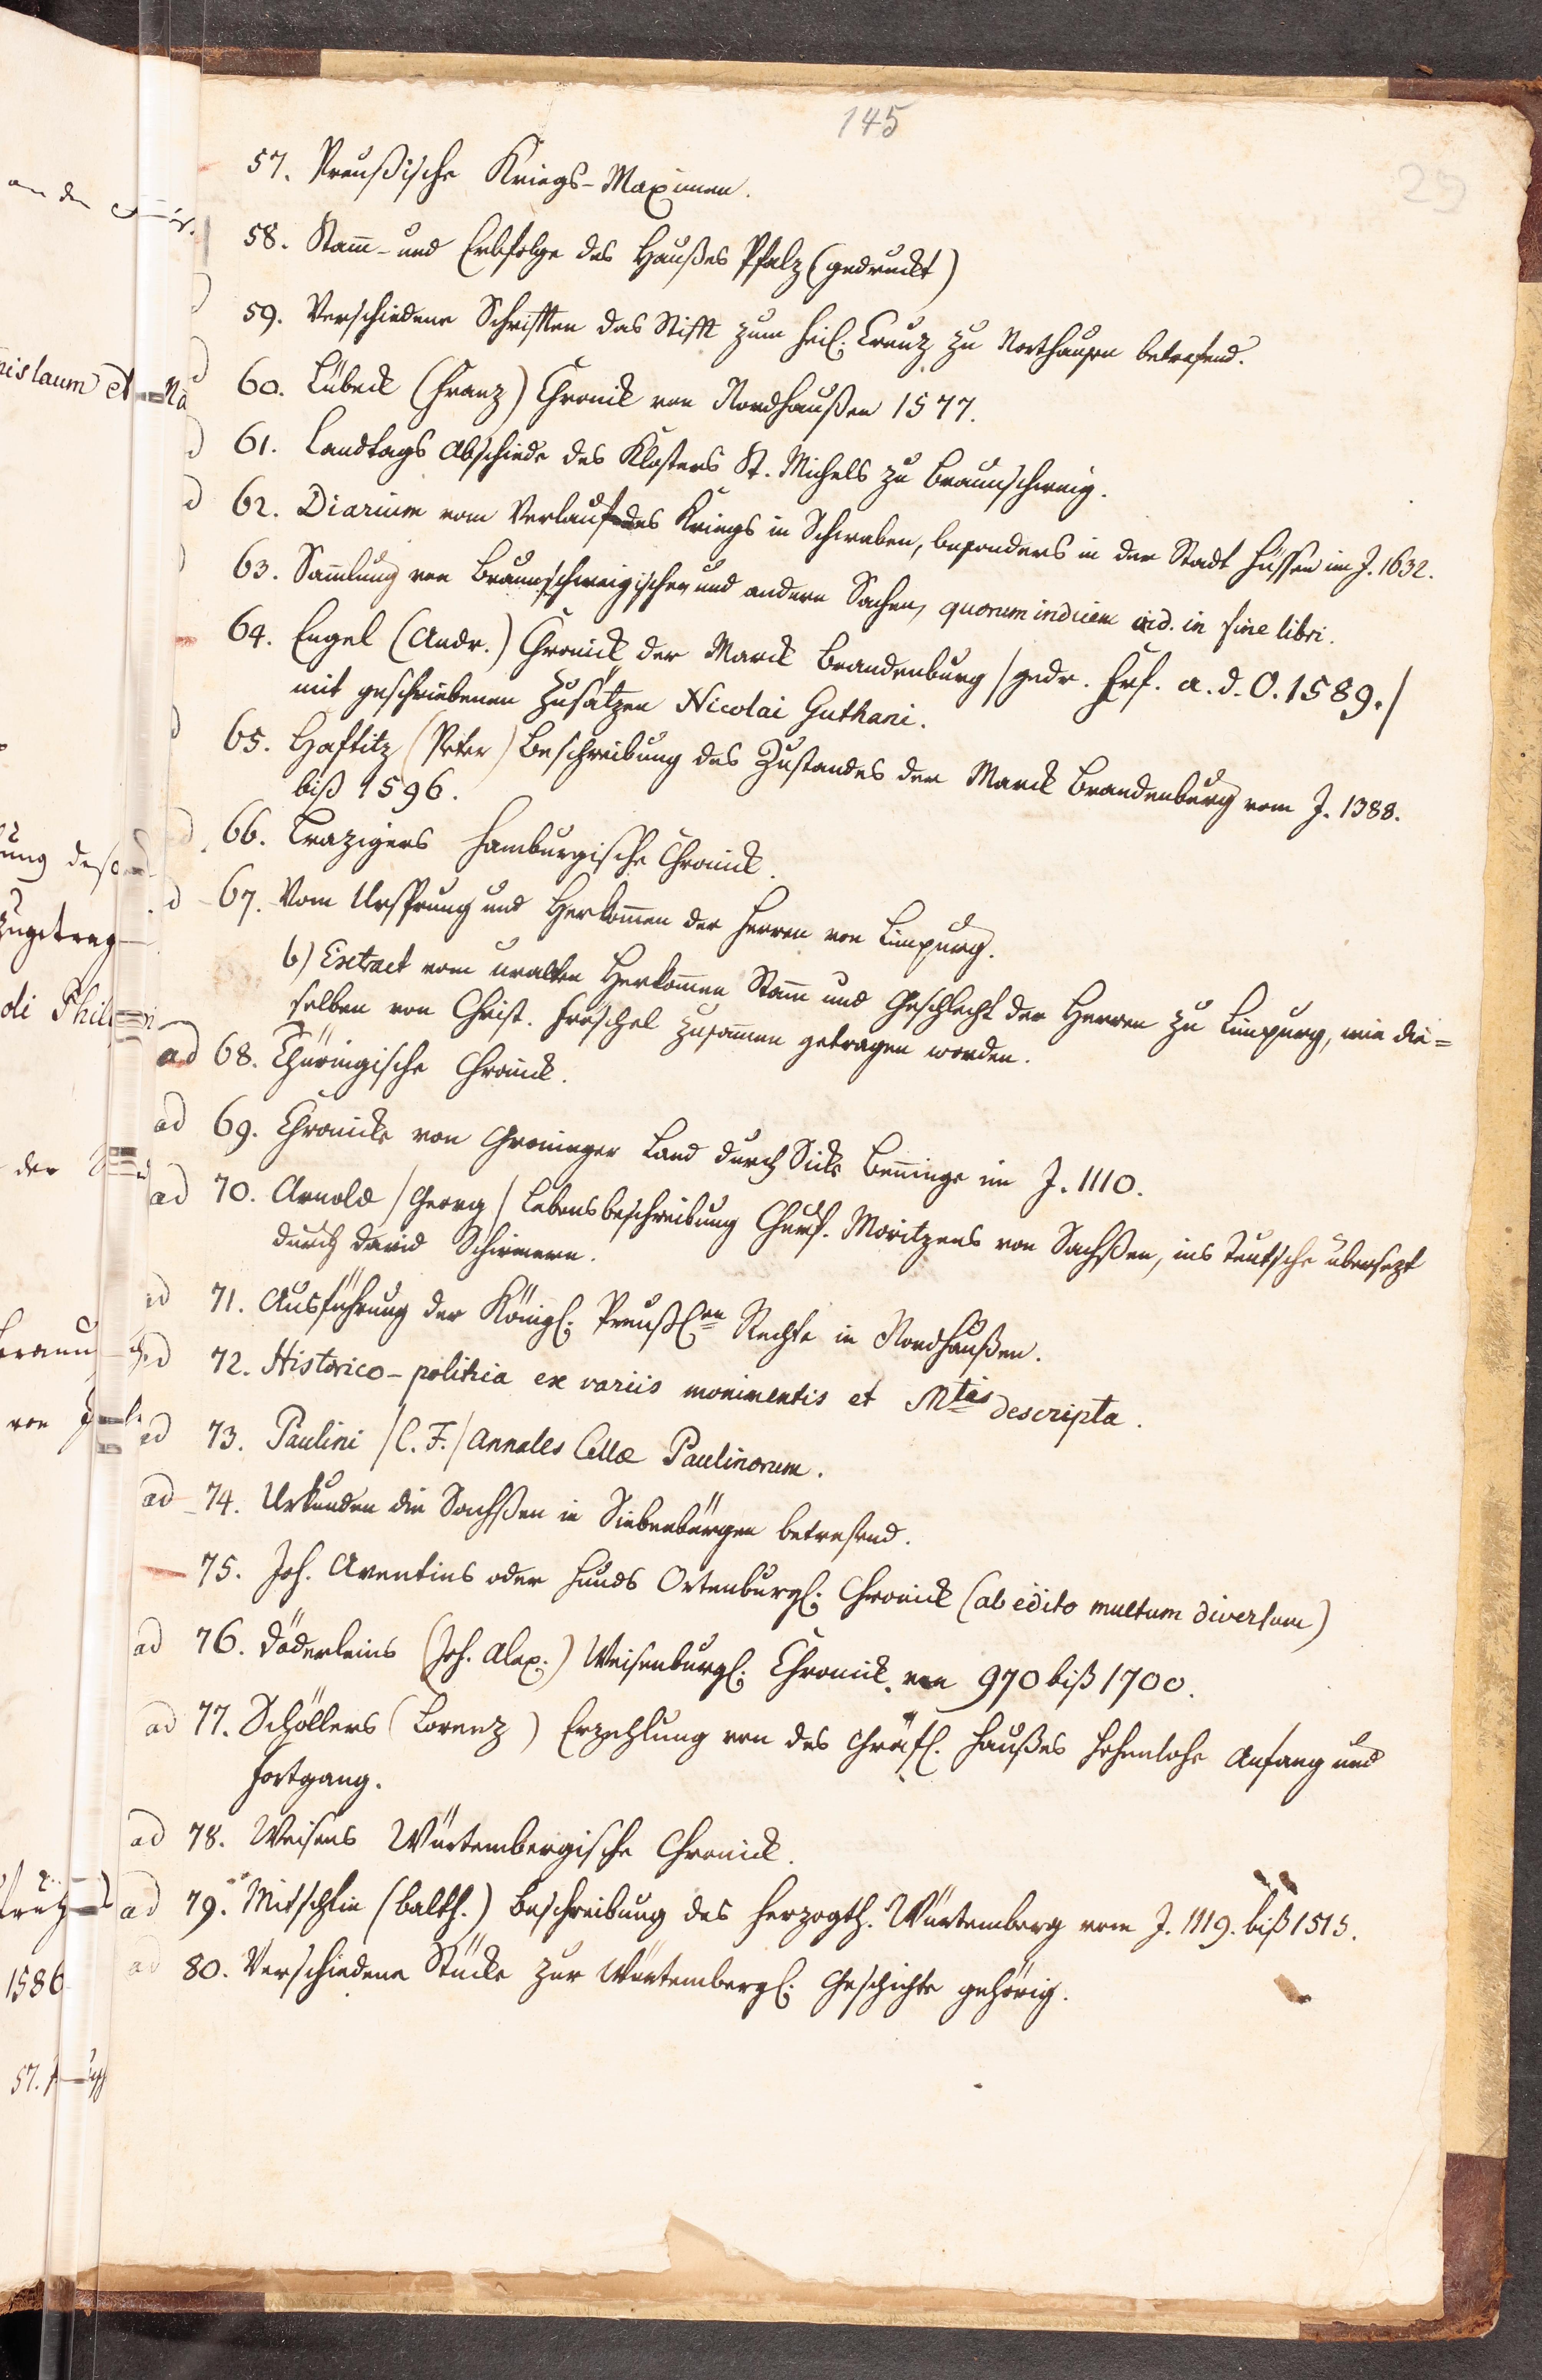 145
23
57. Preußische Kriegs-Maximen.
58. Stam̄- und Erbfolge des Haußes Pfalz (gedruckt)
59. Verschiedene Schrifften das Stifft zum heil. Creuz zu Northausen betrefend.
60. Lübeck (Franz) Chronick von Nordhaußen 1577.
61. Landtags Abschiede des Klosters St. Michels zu Braunschweig.
62. Diarium vom Verlauf des Kriegs in Schwaben, besonders in der Stadt Füssen im J. 1632.
63. Sam̄lung von Braunschweigischen und andern Sachen, quorum indicem vid. in fine libri.
64. Engel (Andr.) Chronick der Marck Brandenburg /gedr. Frf. a. d. O. 1589./
mit geschriebenen Zusätzen Nicolai Guthani.
65. Haftitz (Peter) Beschreibung des Zustandes der Marck Brandenburg vom J. 1388.
biß 1596.
66. Trazigers Hamburgische Chronick.
67. Vom Ursprung und Herkom̄en der Herren von Limpurg.
b) Extract vom uralten Herkom̄en Stam̄ und Geschlecht der Herren zu Limpurg, wie die=
selben von Christ. Fröschel zusam̄en getragen worden.
ad 68. Thüringische Chronick.
ad 69. Chronicke von Groninger Land durch Sicke Bennings im J. 1110.
ad 70. Arnold /Georg/ Lebensbeschreibung Churf. Moritzens von Sachßen, ins Teutsche übersezt
durch David Schirmern.
ad 71. Ausführung der Königl. Preußlen Rechte in Nordhaußen.
ad 72. Historico-politica ex variis monimentis et Mtis descripta.
ad 73. Paulini /C. F./ Annales Cellæ Paulinorum.
ad 74. Urkunden die Sachßen in Siebenbürgen betrefend.
75. Joh. Aventins oder Hunds Ortenburgl. Chronick (ab edito multum diversum)
ad 76. Döderleins (Joh. Alex.) Weisenburgl. Chronick von 970 biß 1700.
ad 77. Schöllers (Lorenz) Erzehlung von des Gräfl. Haußes Hohenlohe Anfang und
Fortgang.
ad 78. Weisens Würtembergische Chronick.
ad 79. Mitschlin (balth.) Beschreibung des Herzogth. Würtemberg vom J. 1119. biß 1515.
ad 80. Verschiedene Stücke zur Würtembergl. Geschichte gehörig.